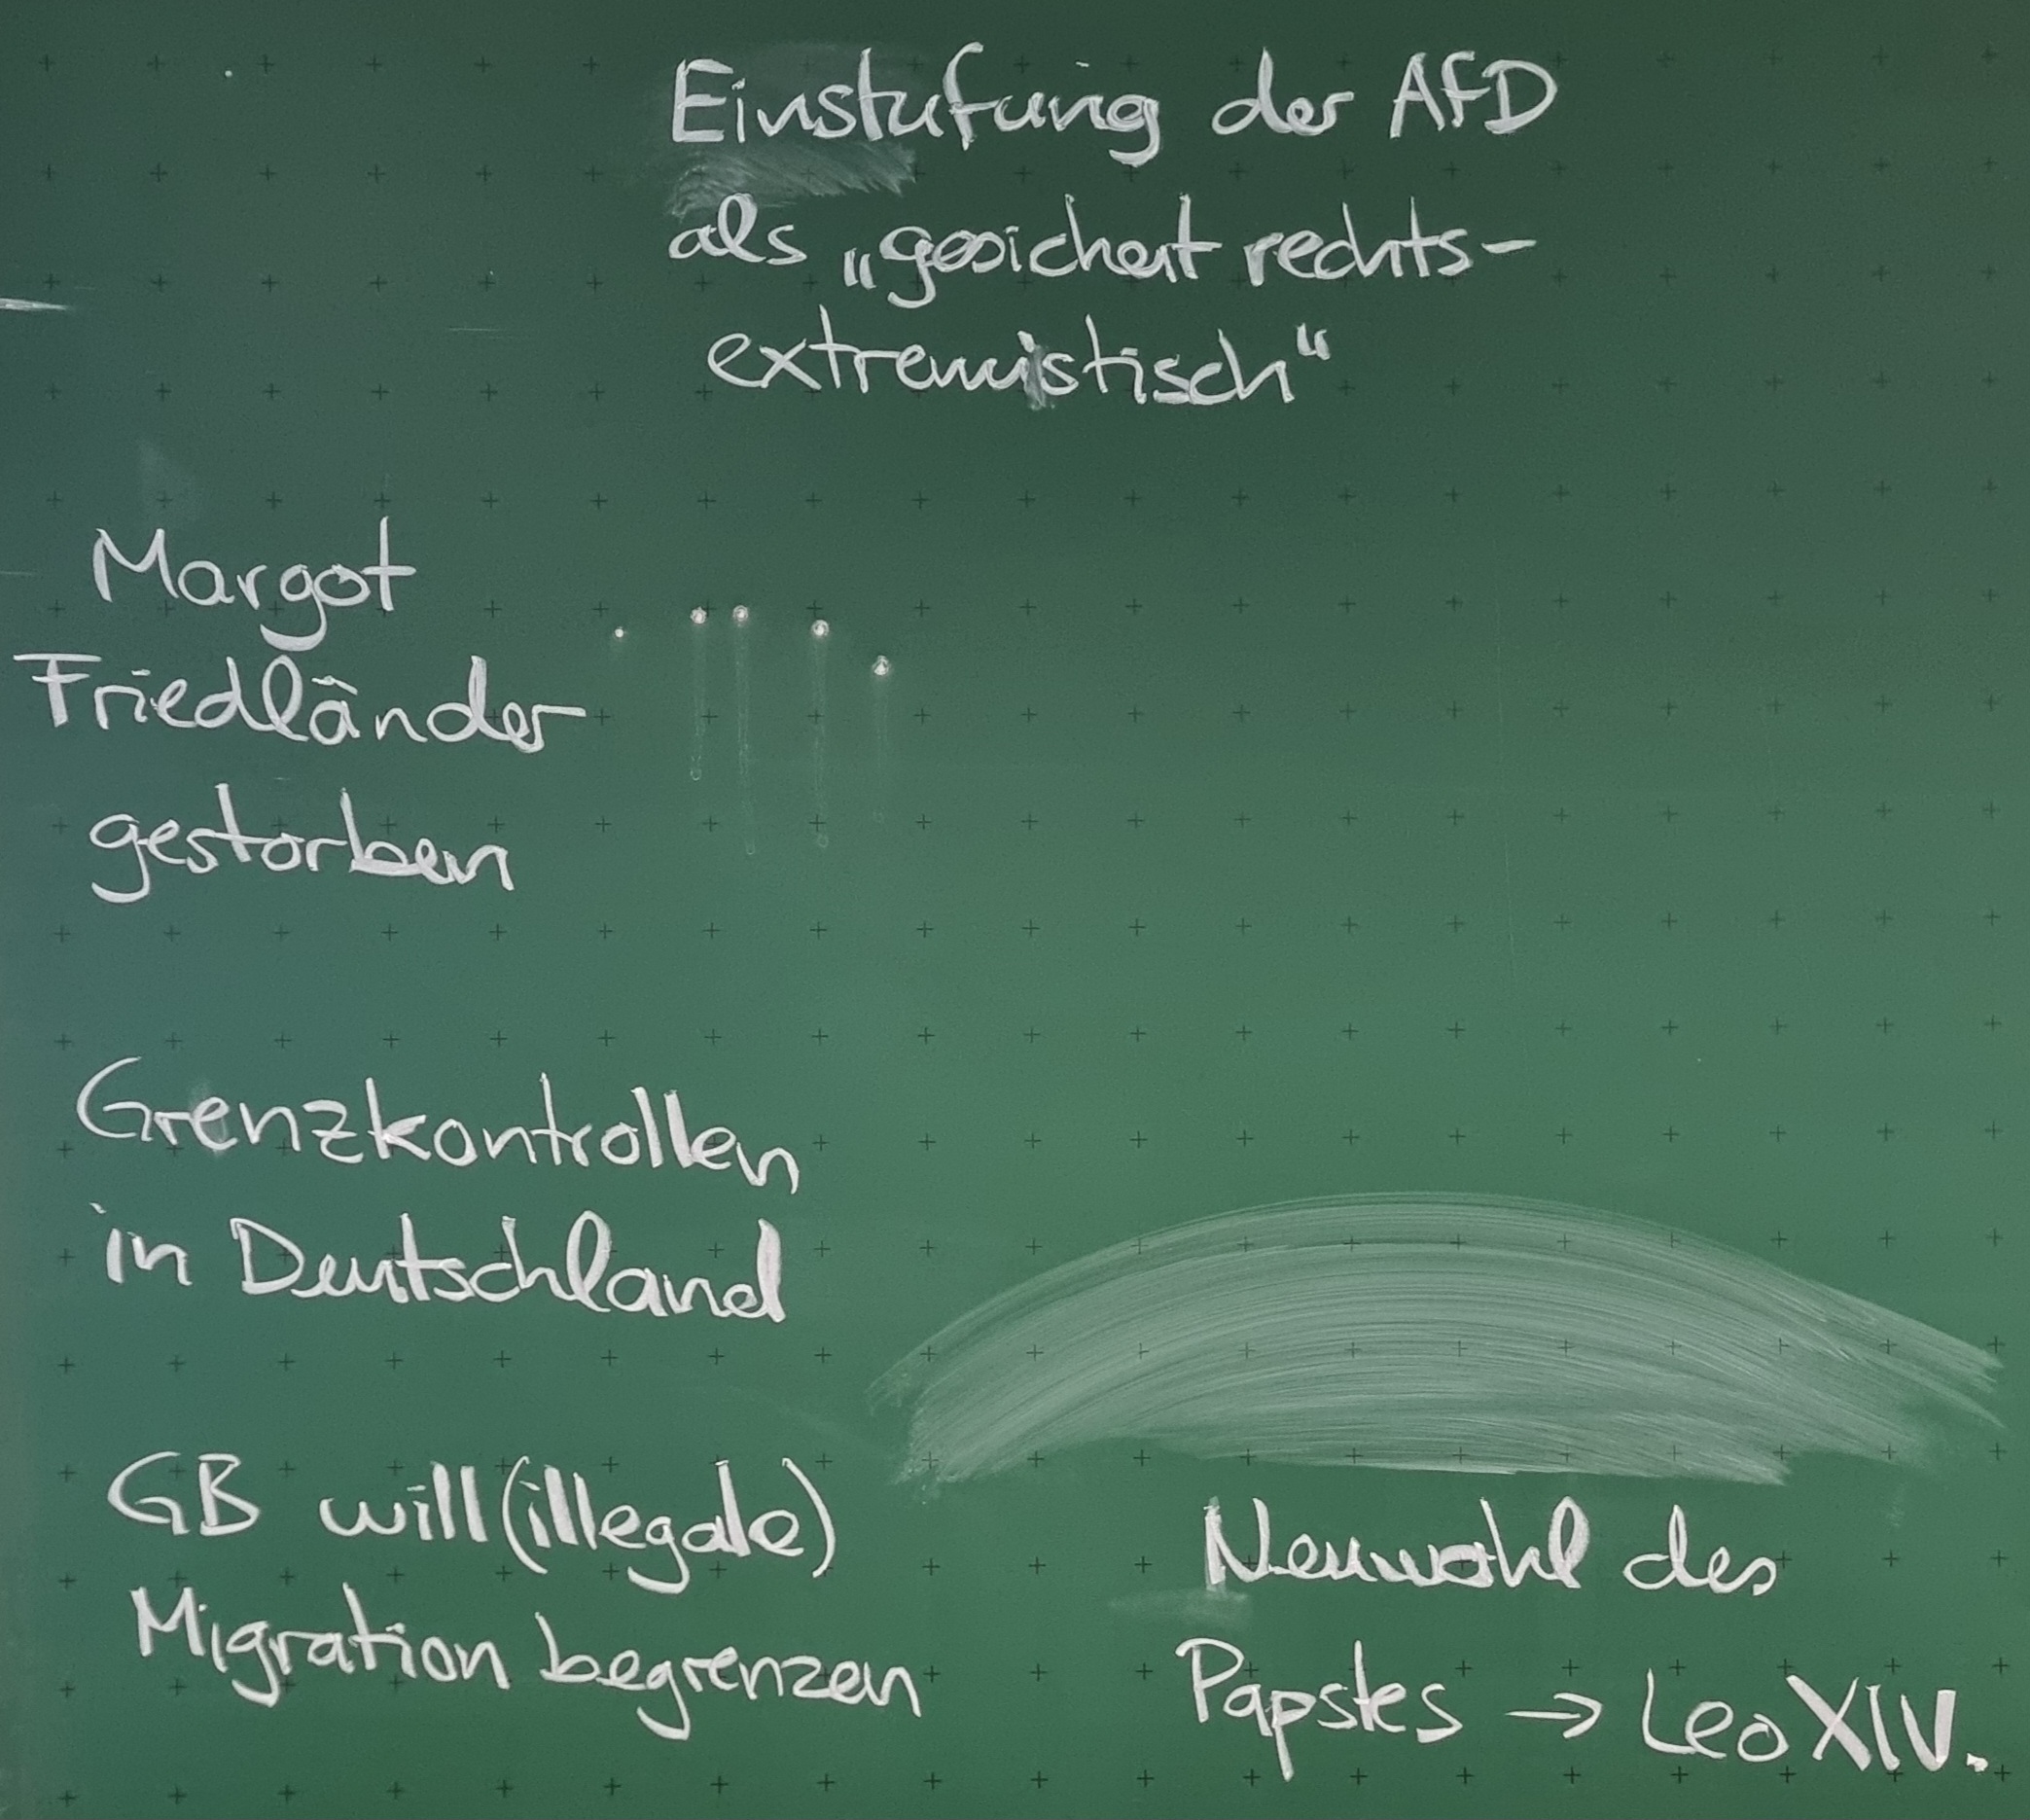 Einstufung der AfD
als „gesichert rechts-
extremistisch“
Margot
Friedländer
gestorben
Grenzkontrollen
in Deutschland
GB will (illegale)
Migration begrenzen
Neuwahl des
Papstes → Leo XIV.